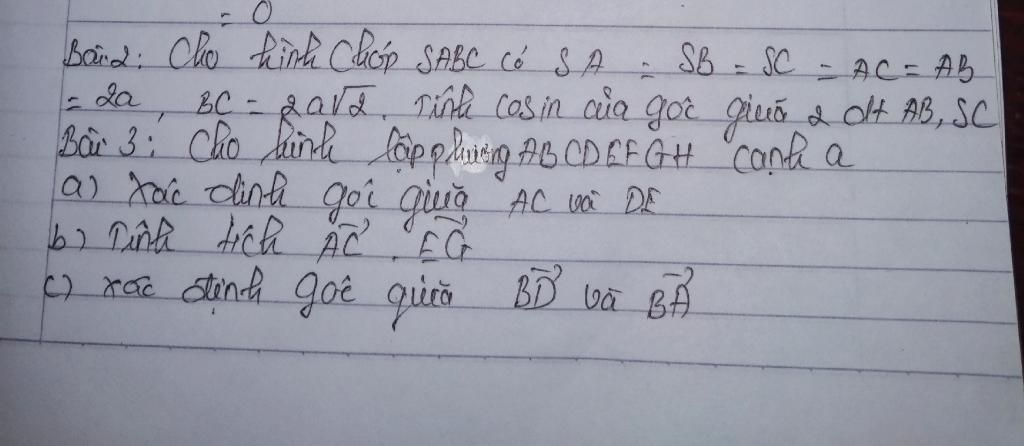 = 0
Bài 2: Cho hình chóp SABC có SA = SB = SC = AC = AB
= 2a, BC = 2a√2. Tính cosin của góc giữa 2 đt AB, SC
Bài 3: Cho hình lập phương ABCDEFGH cạnh a
a) Xác định góc giữa AC và DE
b) Tính tích \(\overrightarrow{AC}\) . \(\overrightarrow{EG}\)
c) xác định góc giữa \(\overrightarrow{BD}\) và \(\overrightarrow{BA}\)